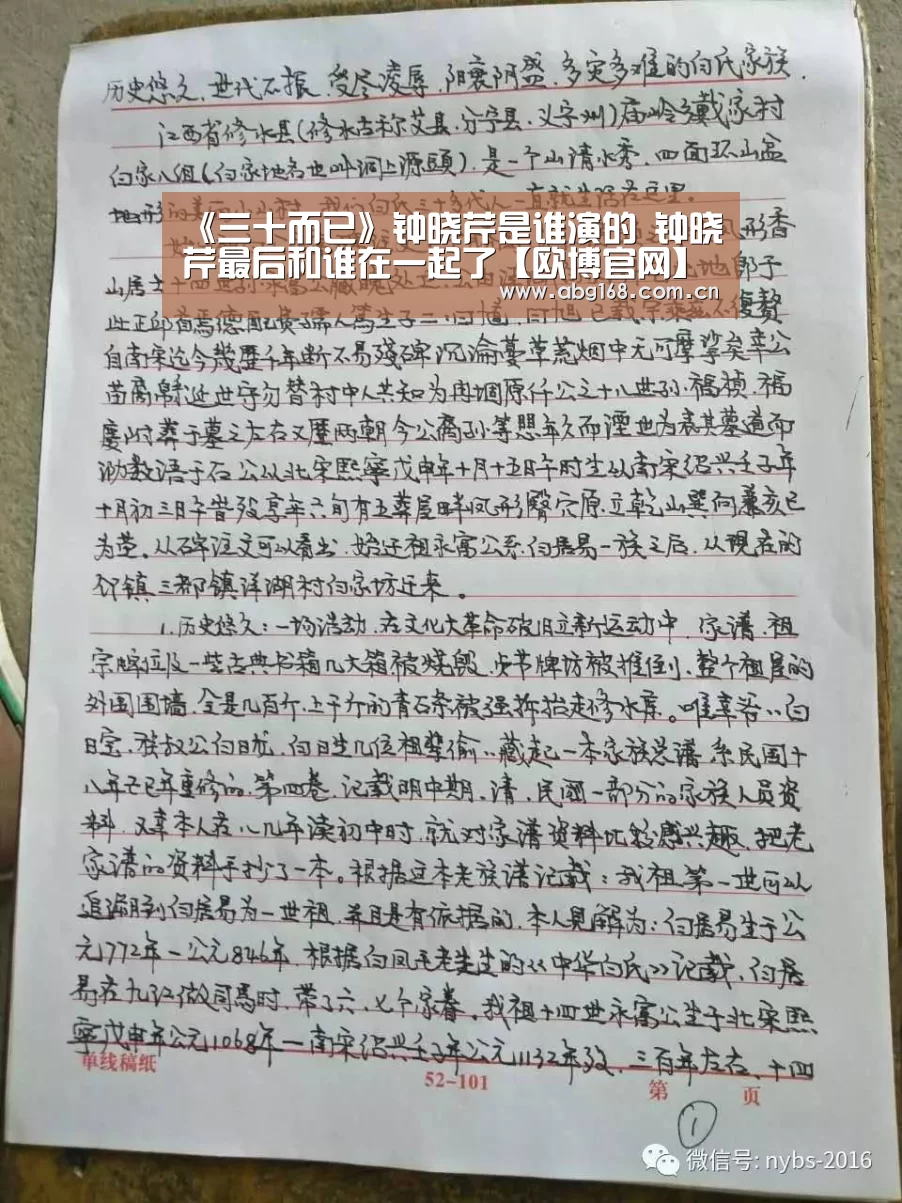 历史悠久、世代不振、受尽凌辱、阴衰阴盛、多灾多难的白氏家族.
江西省修水县(修水古称艾县、分宁县、义宁州)庙岭乡戴家村
白家八组(白家地名也叫洞上源头)、是一个山清水秀、四面环山盆
地形的美丽小山村、我们白氏三十多代人一直就生活在这里.
《三十而已》钟晓芹是谁演的 钟晓
形香
芹最后和谁在一起了【欧博官网】
山居士十四世孙永富公藏魄处也
地 郭子
www.abg168.com.cn
此正邱首焉德配黄孺人笃生子二
復赘
自南宋迄今幾歷千年断不易残碑沉淪蔓草荒烟中无可摩挲矣幸公
苗裔 延世守勿替村中人共知为 原仟公之十八世孙福祯、福
慶附葬于墓之左右又歷两朝今公裔孙等想年久而湮也为表其墓道而
泐数语于石公从北宋熙寧戊申年十月十五日午时生从南宋绍兴壬子年
十月初三日午昔殁享年六旬有五葬屋畔凤形 穴原立乾山巽向兼亥巳
为茔。从碑注文可以看出、始迁祖永富公系白居易一族之后、从现在的
邻镇三都镇洋湖村白家坊迁来。
1.历史悠久:一场浩劫、在文化大革命破旧立新运动中、家谱、祖
宗牌位及一些古典书箱几大箱被烧毁、步节牌坊被推倒、整个祖屋的
外围围墙、全是几百斤、上千斤的青石条被强拆抬走修水库。唯幸爷⺀白
日宝、族叔公白日龙、白日生几位祖辈偷⺀藏起一本家族总谱、系民国十
八年己巳年重修的、第四卷、记载明中期、清、民國一部分的家族人员资
料、又幸本人在八几年读初中时、就对家谱资料比较感兴趣、把老
家谱的资料手抄了一本。根据这本老族谱记载:我祖第一世可以
追溯到白居易为一世祖、并且是有依据的、本人見解为:白居易生于公
元772年一公元846年、根据白凤王老先生的《中华白氏》记载、白居
易在九江做司馬时、带了六、七个家眷。我祖十四世永富公生于北宋熙
寧戊申年公元1068年一南宋绍兴壬子年公元1132年殁、三百年左右、十四
单线稿纸
52-101
第 页
1
微信号: nybs-2016